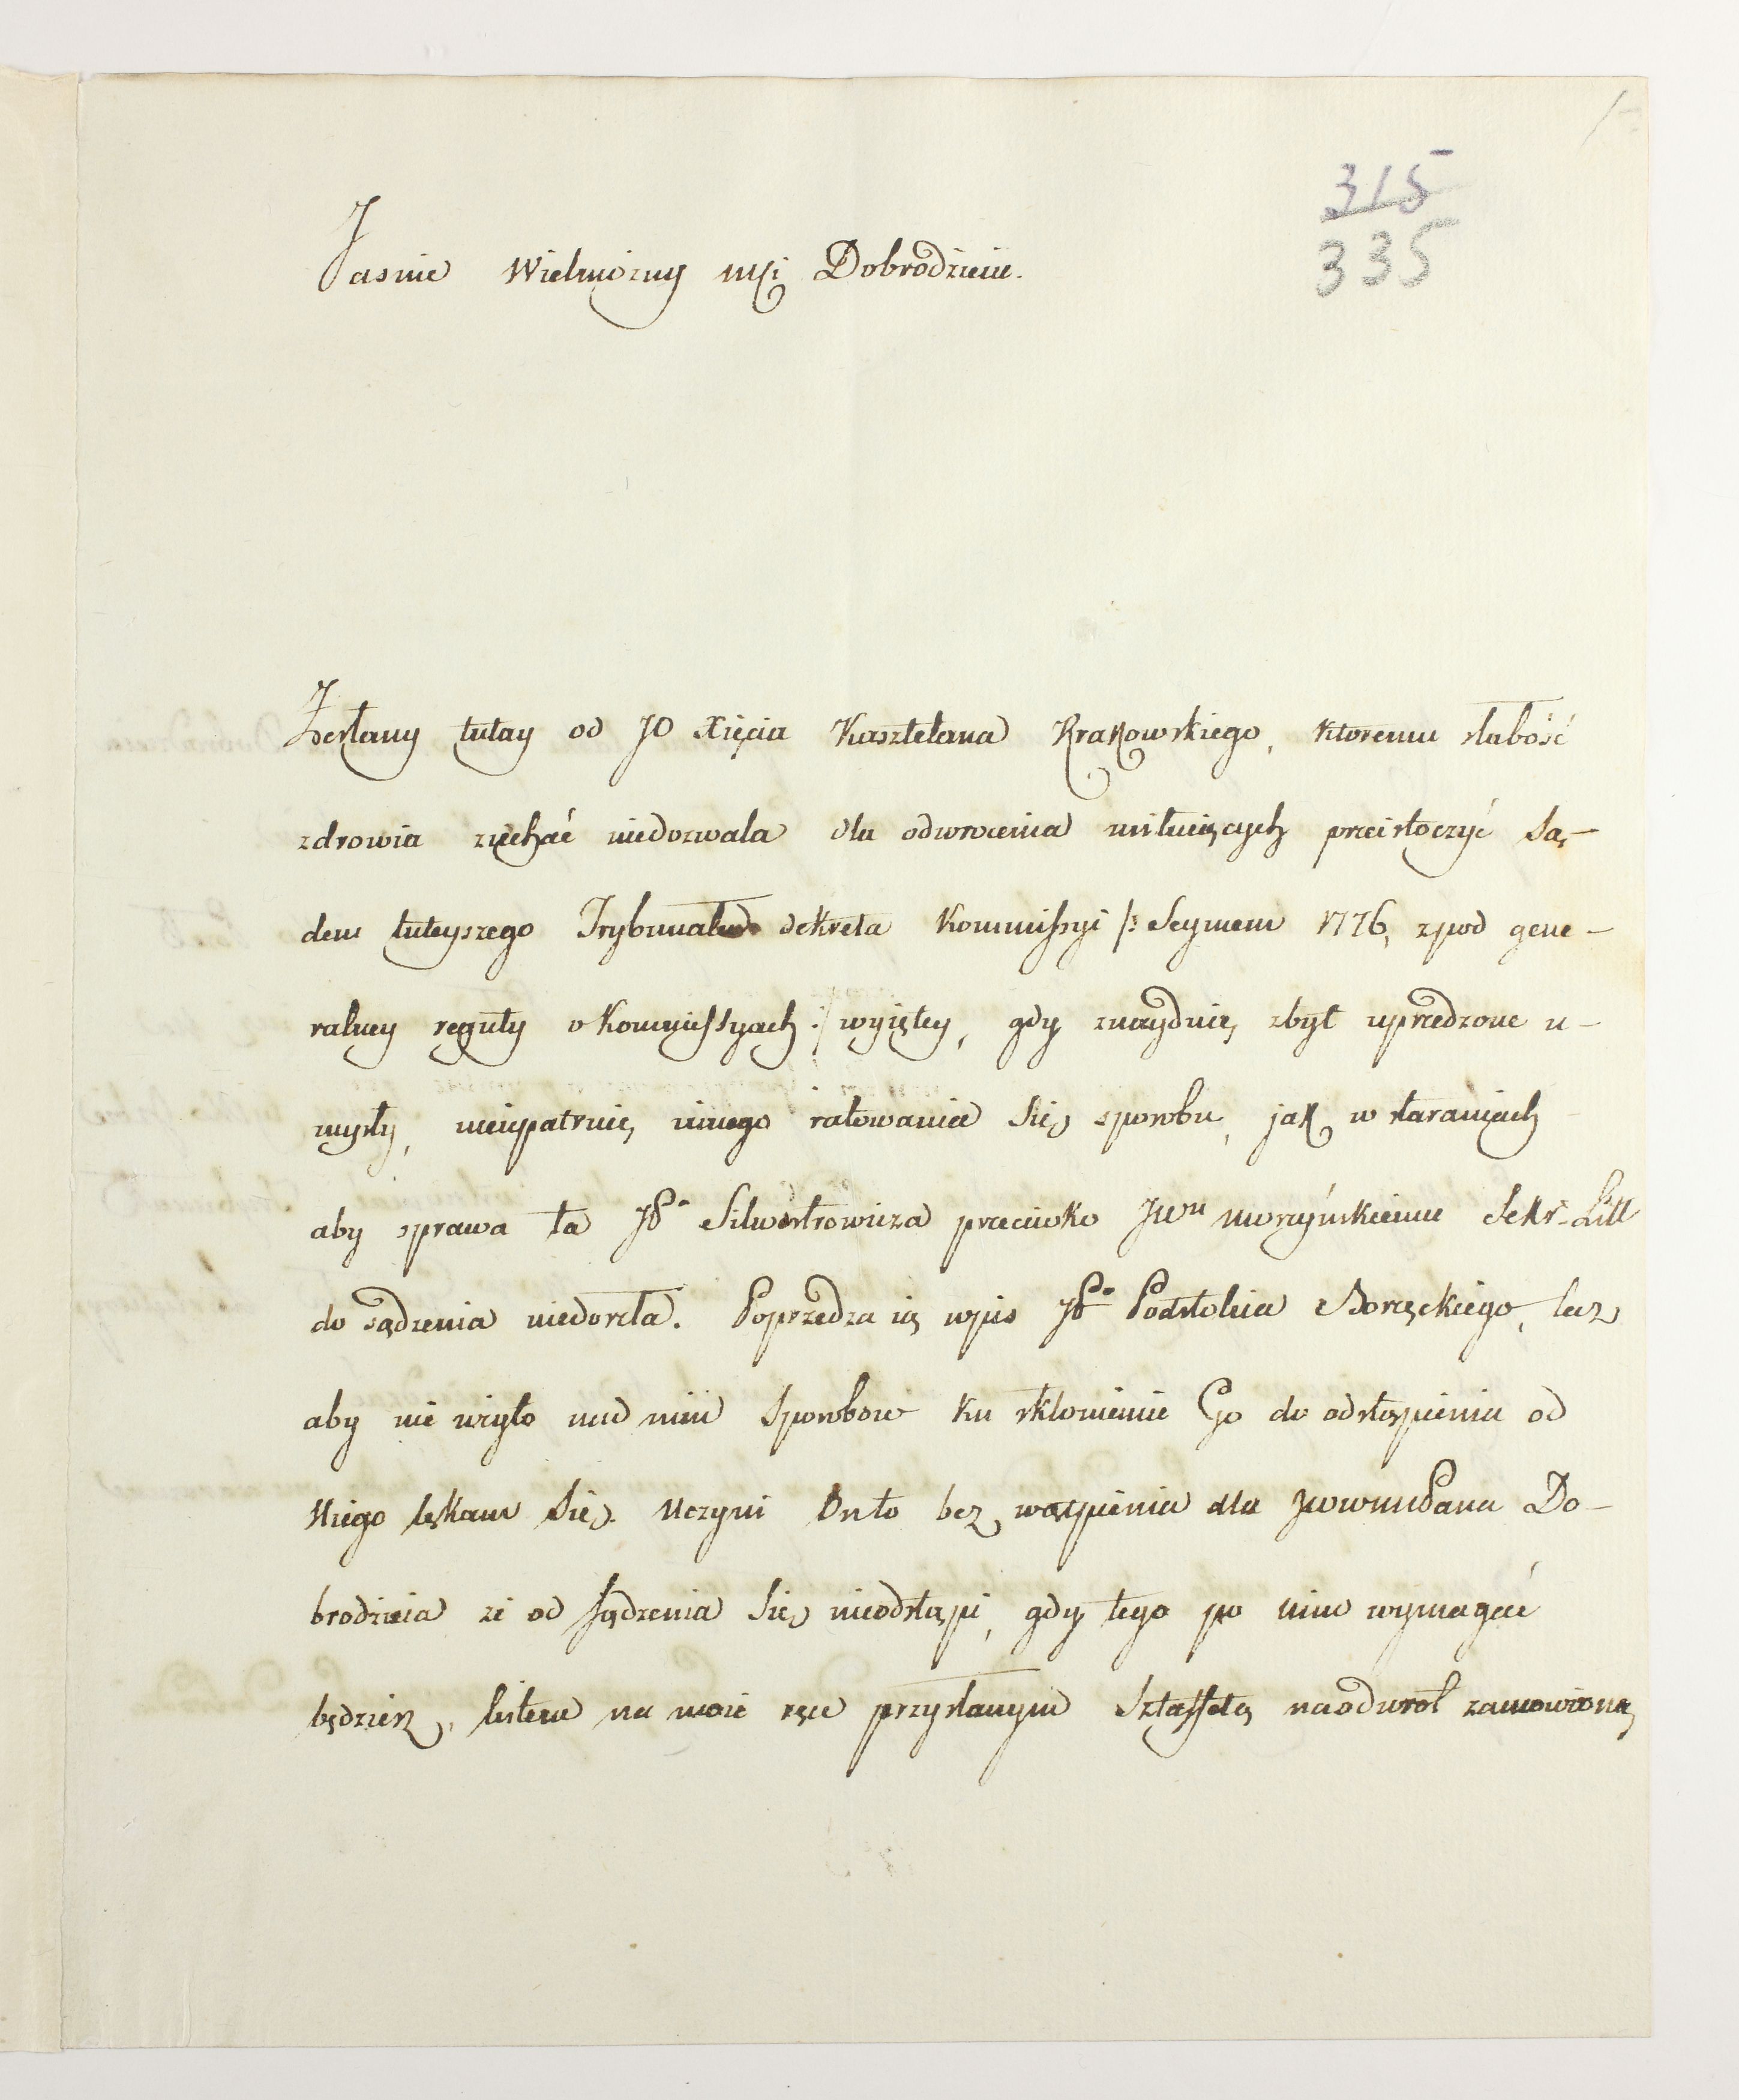 315
335
Jasnie Wielmożny Mći Dobrodzieiu.
Zesłany tutay od JO Xięcia Kasztelana Krakowskiego, ktoremu słabość
zdrowia ziechać niedozwala dla odwrocenia usiłuiących przeistoczyć Są-
dem tuteyszego Trybunału dekreta Kommissyi /: Seymem 1776, zpod gene-
ralney reguły o Kommissyach :/ wyiętey, gdy znayduię zbyt uprzedzone u-
mysły, nieupatruię innego ratowania się sposobu, jak w staraniach
aby sprawa ta JP. Silwestrowicza przeciwko JWu Morzyńskiemu Sekr. Litt
do sądzenia niedoszła. Poprzedza ią wpis JP. Podstolica Borzęckiego, lecz
aby nie użyto nad nim sposobow ku skłonieniu Go do odstąpienia od
Niego lękam się. Uczyni On to bez wątpienia dla JWWMPana Do-
brodzieia że od sądzenia się nieodstąpi, gdy tego po nim wymagać
będziesz, listem na moie ręce przysłanym Sztaffetą naodwrot zamowioną